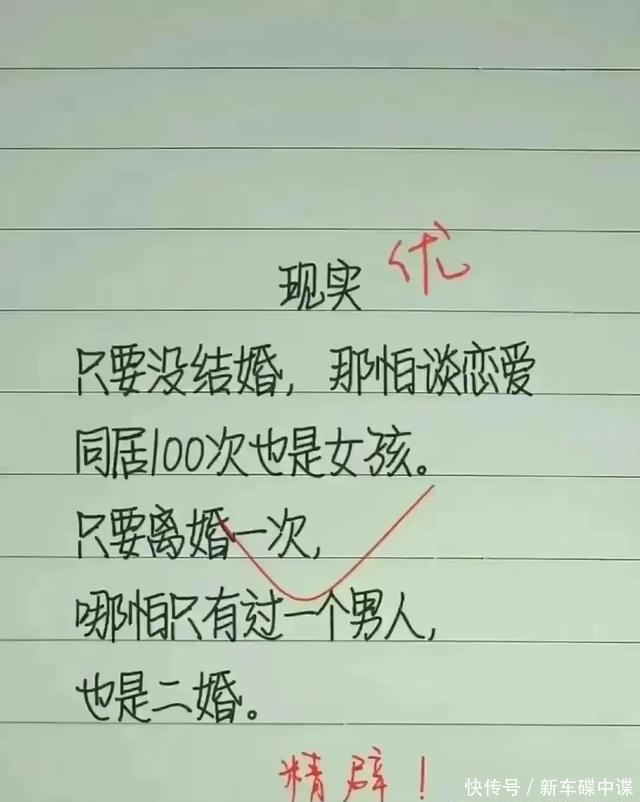 现实 优
只要没结婚，那怕谈恋爱
同居100次也是女孩。
只要离婚一次，
哪怕只有过一个男人，
也是二婚。
精辟！
快传号／新车碟中谍